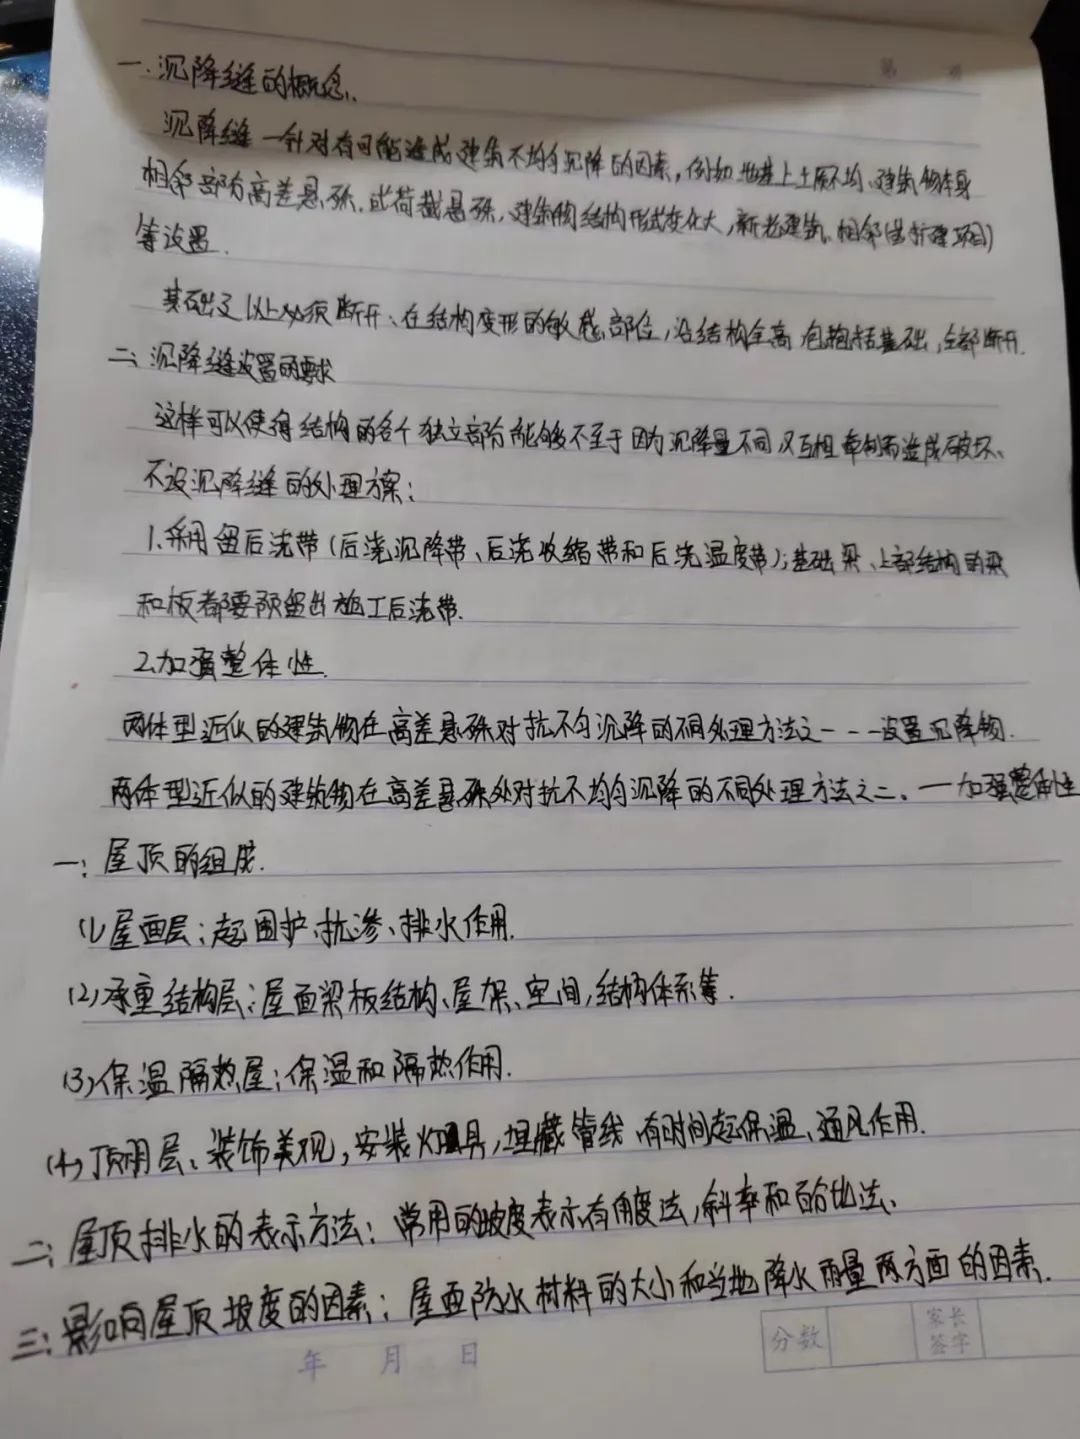 第 页
一、沉降缝的概念、
沉降缝一针对有可能造成建筑不均匀沉降的因素，例如地基上土质不均、建筑物本身
相邻部分高差悬殊、或荷载悬殊、建筑物结构形式变化大，新老建筑、相邻(出扩建项目)
等设置.
基础及以上必须断开、在结构变形的敏感部位，沿结构全高包抱括基础，全部断开.
二、沉降缝设置的要求
这样可以使得结构的各个独立部分能够不至于因为沉降量不同又互相牵制而造成破坏、
不设沉降缝的处理方案：
1.采用留后浇带(后浇沉降带、后浇收缩带和后浇温度带)；基础梁、上部结构的梁
和板都要预留出施工后浇带.
2.加强整体性.
两体型近似的建筑物在高差悬殊对抗不匀沉降的不同处理方法之一---设置沉降物.
两体型近似的建筑物在高差悬殊处对抗不均匀沉降的不同处理方法之二、一加强整体性
一：屋顶的组成.
(1)屋面层：起围护、抗渗、排水作用.
(2)承重结构层：屋面梁板结构、屋架、空间，结构体系等.
(3)保温隔热屋：保温和隔热作用.
(4)顶朋层、装饰美观，安装灯具，埋藏管线 有时间起保温、通风作用.
二：屋顶排水的表示方法：常用的坡度表示有角度法，斜率和百分比法、
三：影响屋顶坡度的因素：屋面防水材料的大小和当地降水雨量两方面的因素.
年 月 日
分数
家长
签字